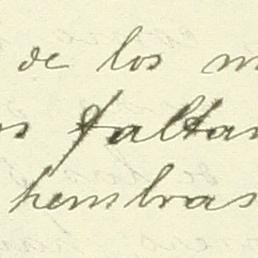 de los
faltan
hembras